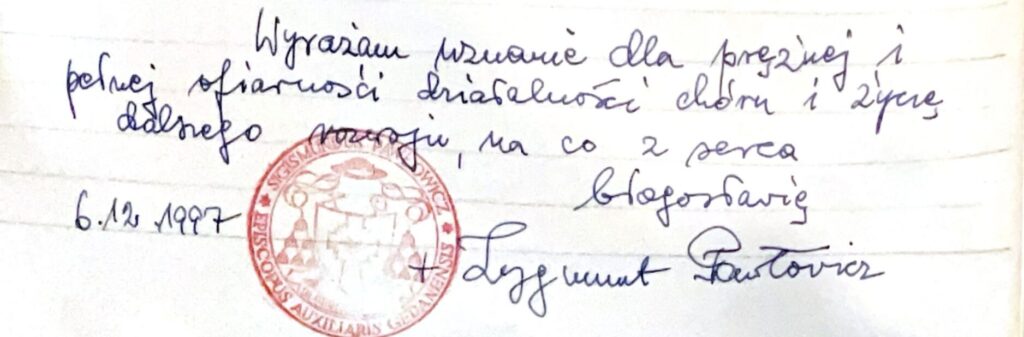 Wyrażam uznanie dla prężnej i
pełnej ofiarności działalności chóru i życzę
dalszego rozwoju, na co z serca
błogosławię
6.12.1997
+ Zygmunt Pawłowicz
SIGISMUNDUS PAWŁOWICZ
* EPISCOPUS AUXILIARIS GEDANENSIS *